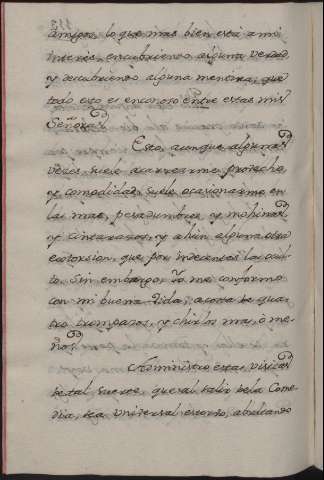 amigos, lo que mas bien esta a mi
interès, encubriendo alguna verdad,
y descubriendo alguna mentira, que
todo esto es enconoso entre estas mis
Señoras.
Esto, aunque algunas
vezes suele acarrearme provecho,
y comodidad, suele ocasionarme en
las mas, pesadumbres, y mohinas,
y cintarazos, y ahùn alguna otra
extorsion, que por indecente la
to. Sin embargo, Yo me conformo
con mi buena Vida, acosta de qua-
tro trompazos, y chirlos mas, ò me-
nos.
Administro estas visitas
de tal suerte, que al salir de la Come-
dia, sea universal estorvo, abultando